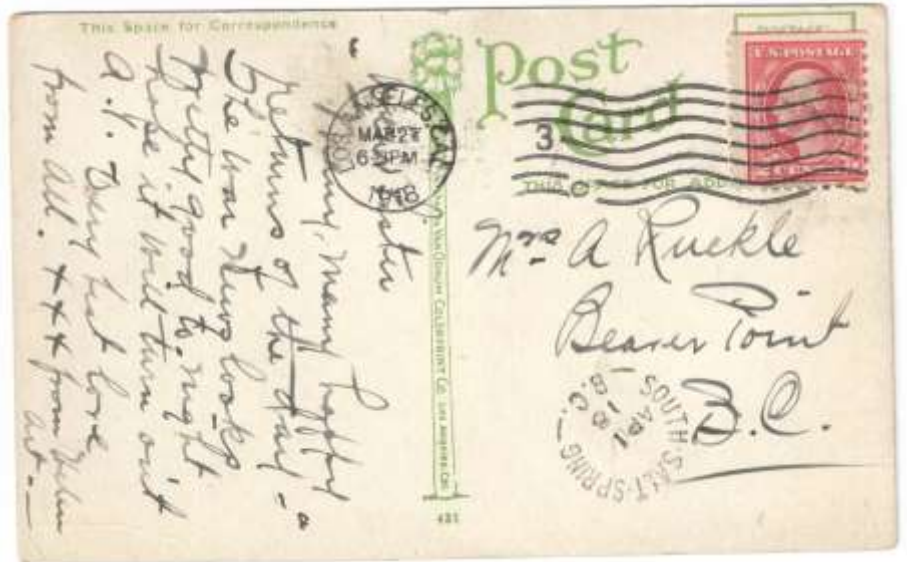 This Space for Correspondence
Sister
Many, Many happy
returns of the day -
The War News looks
pretty good to-night
hope it will turn out
O.K. Very best love
from all. x x x from Helen
Art. -
Post
Card
U.S. POSTAGE
LOS ANGELES, CAL.
MAR 27
PM
1918
3
Mrs A Ruckle
Beaver Point
B.C.
SOUTH SALT SPRING
B.C.
AP 1
18
VAN ORNUM COLORPRINT CO. LOS ANGELES, CAL.
421